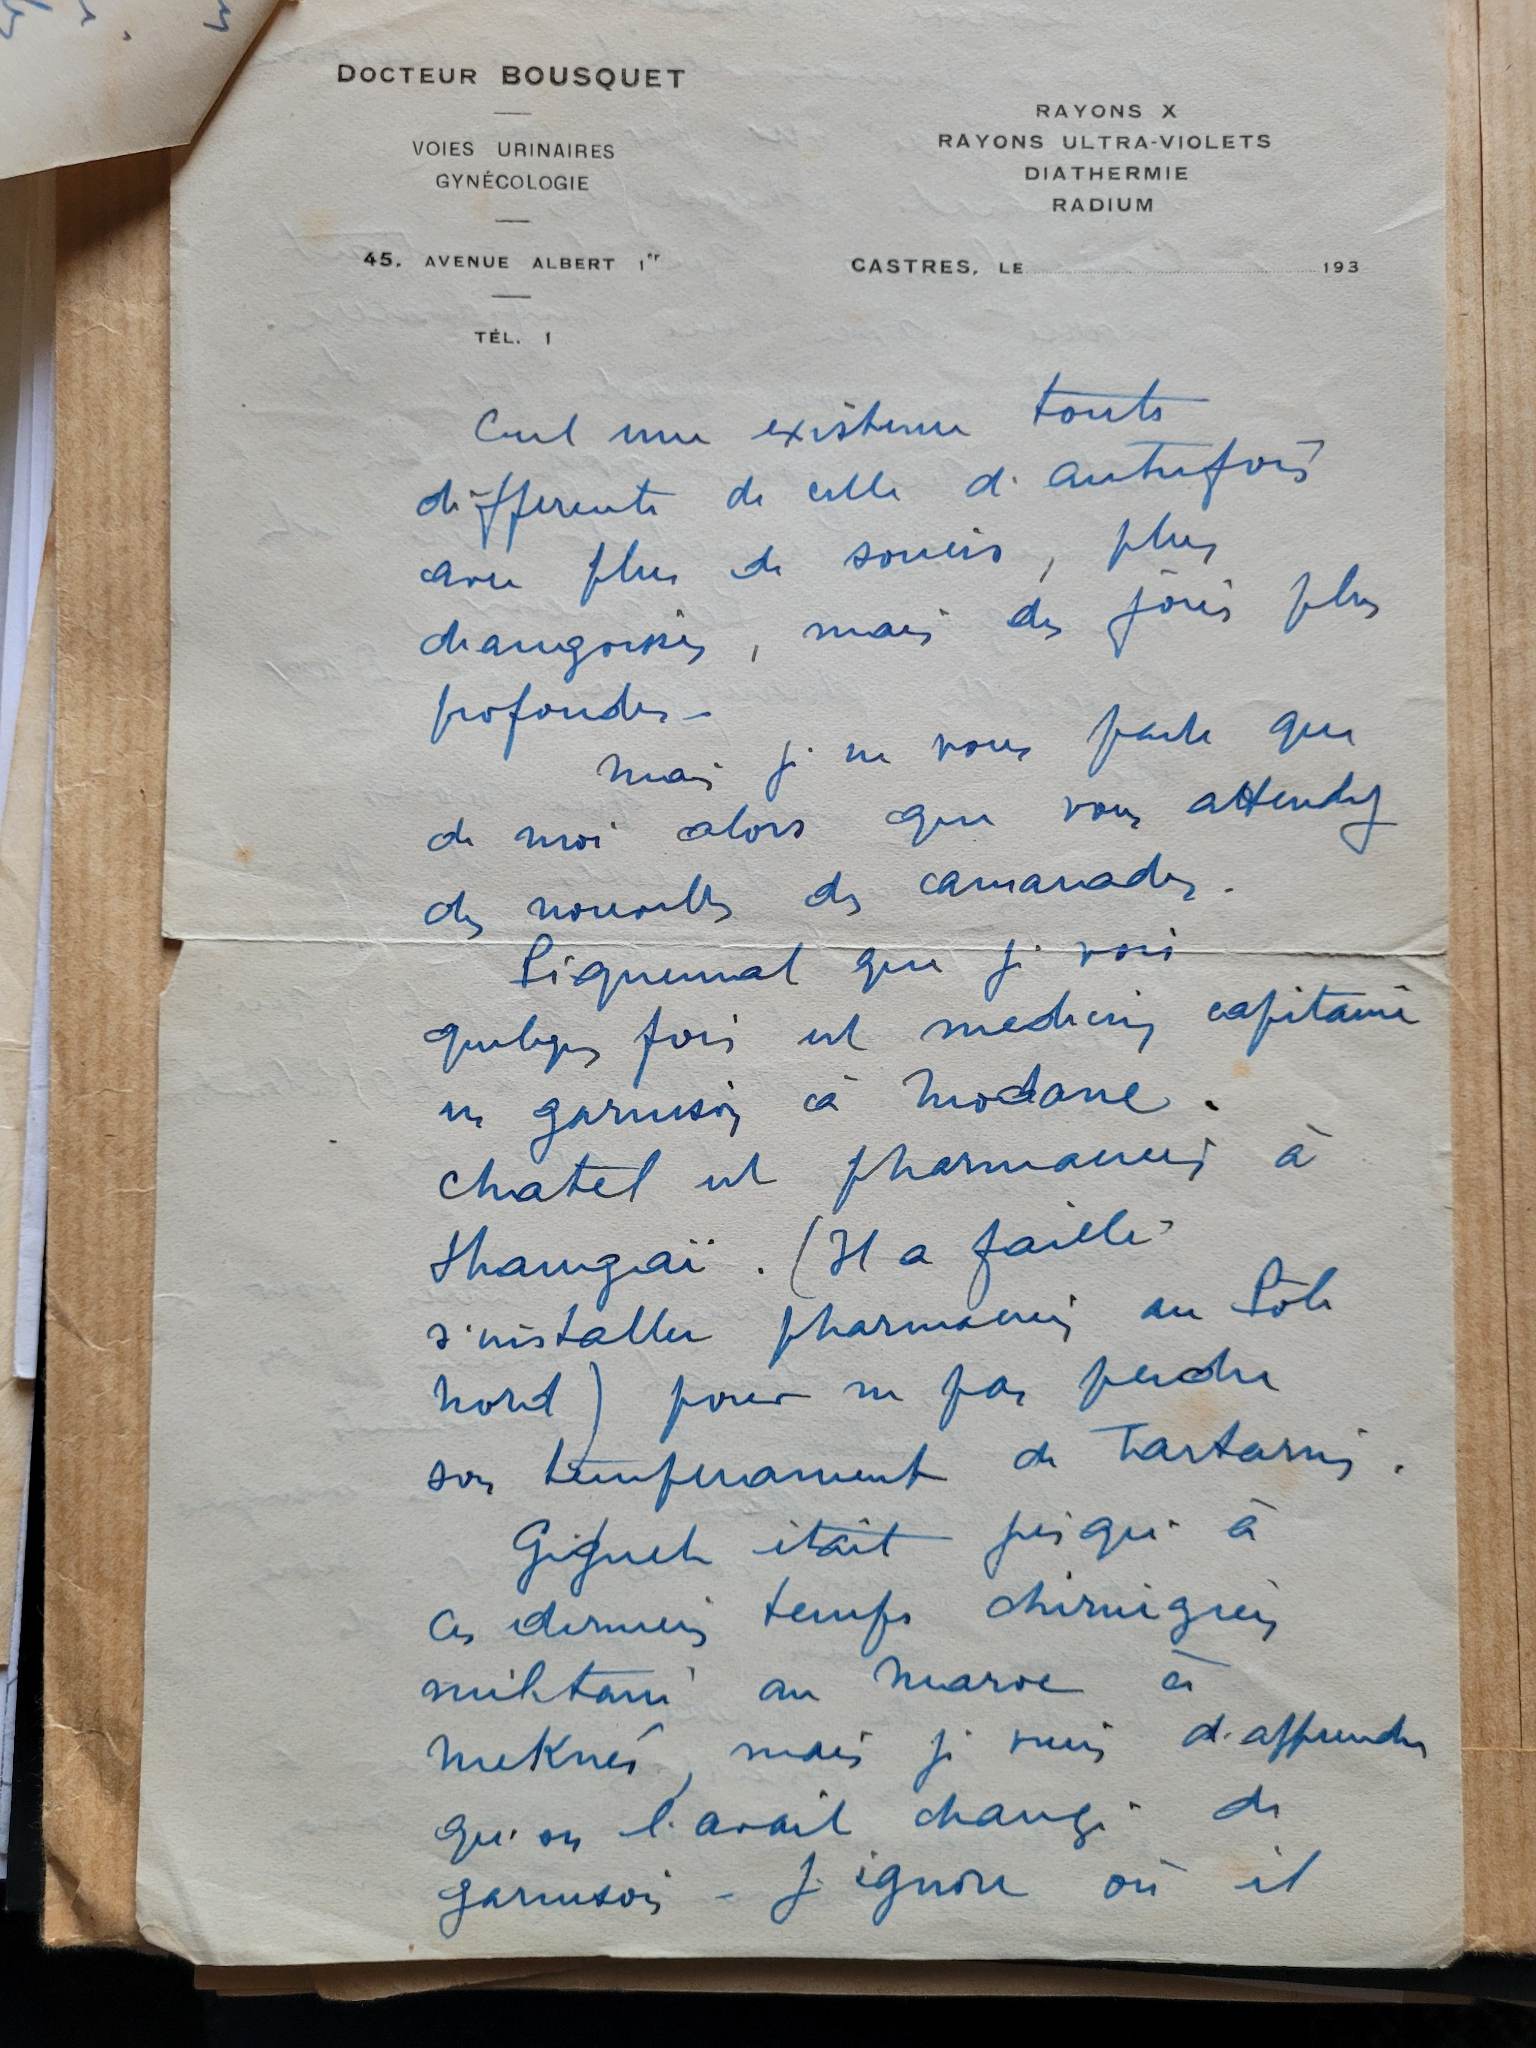 DOCTEUR BOUSQUET
VOIES URINAIRES
GYNÉCOLOGIE
45. AVENUE ALBERT 1er
TÉL. 1
RAYONS X
RAYONS ULTRA-VIOLETS
DIATHERMIE
RADIUM
CASTRES, LE 193
C'est une existence toute
différente de celle d'autrefois
avec plus de soucis, plus
d'angoisses, mais des joies plus
profondes -
Mais je ne vous parle que
de moi alors que vous attendez
des nouvelles des camarades.
Piquemal que je vois
quelques fois est medecin capitaine
en garnison à Modane.
Chatel est pharmacien à
Shangaï. (Il a failli
s'installer pharmacien au Pôle
Nord) pour ne pas perdre
son temperament de Tartarin.
était jusqu'à
ces derniers temps chirurgien
militaire au Maroc à
Meknès, mais je viens d'apprendre
qu'on l'avait changé de
garnison - J'ignore où il